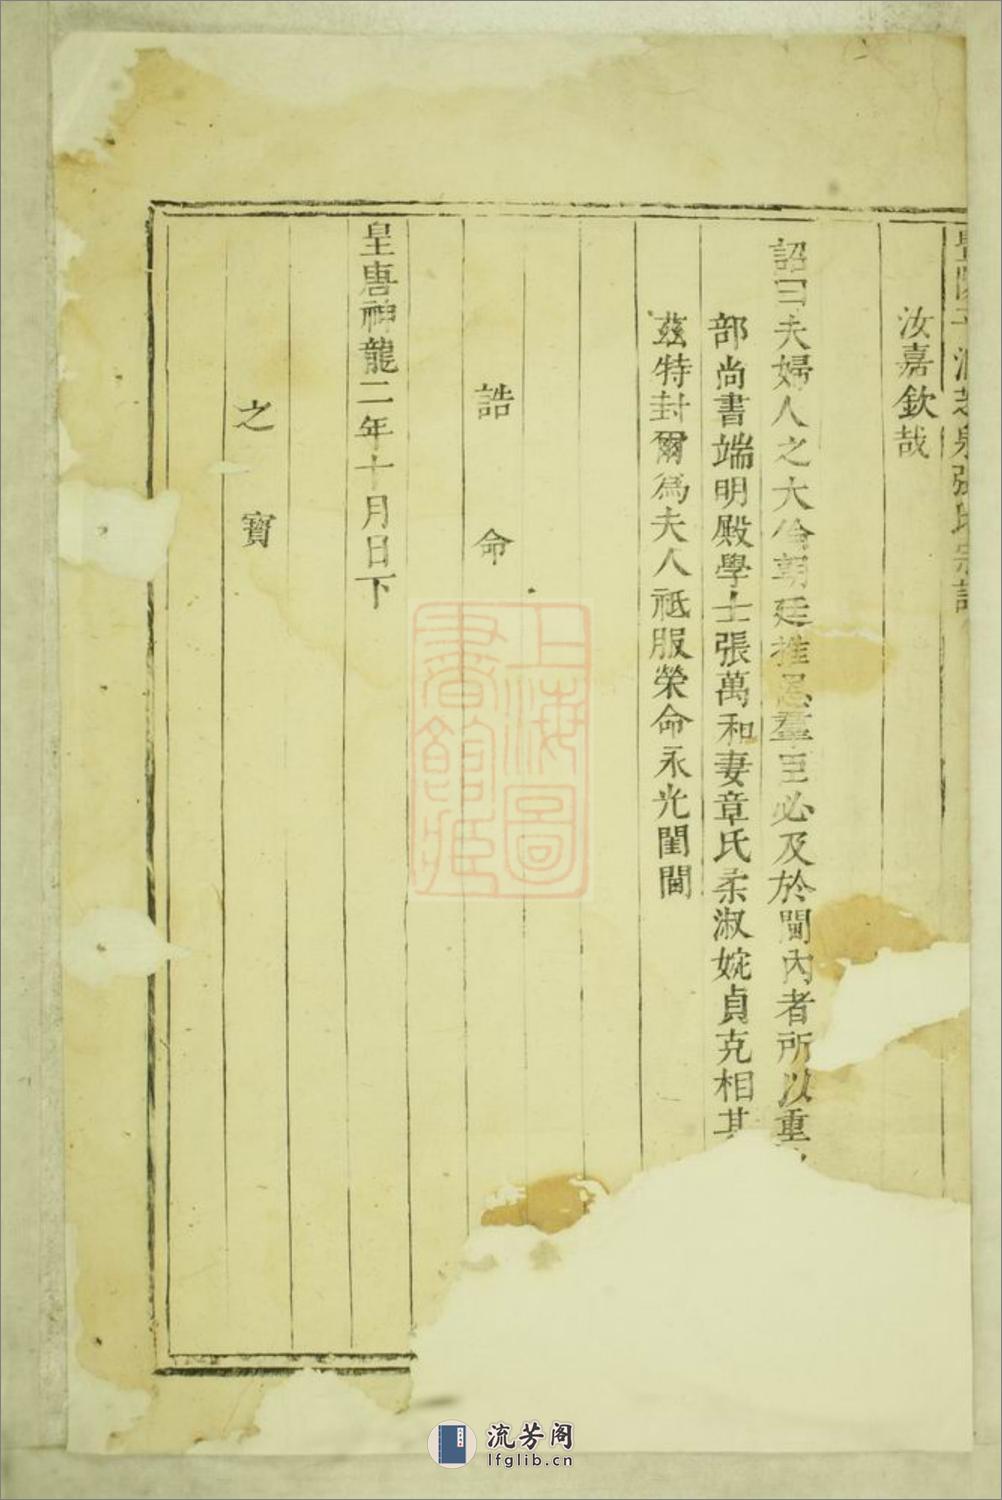 張氏宗譜
汝嘉欽哉
詔曰夫婦人之大倫朝廷推恩羣臣必及於閫內者所以重
部尚書端明殿學士張萬和妻章氏柔淑婉貞克相其
茲特封爾爲夫人祗服榮命永光閨閫
誥命
皇唐神龍二年十月日下
之寶
上海圖
書館藏
流芳阁
lfglib.cn